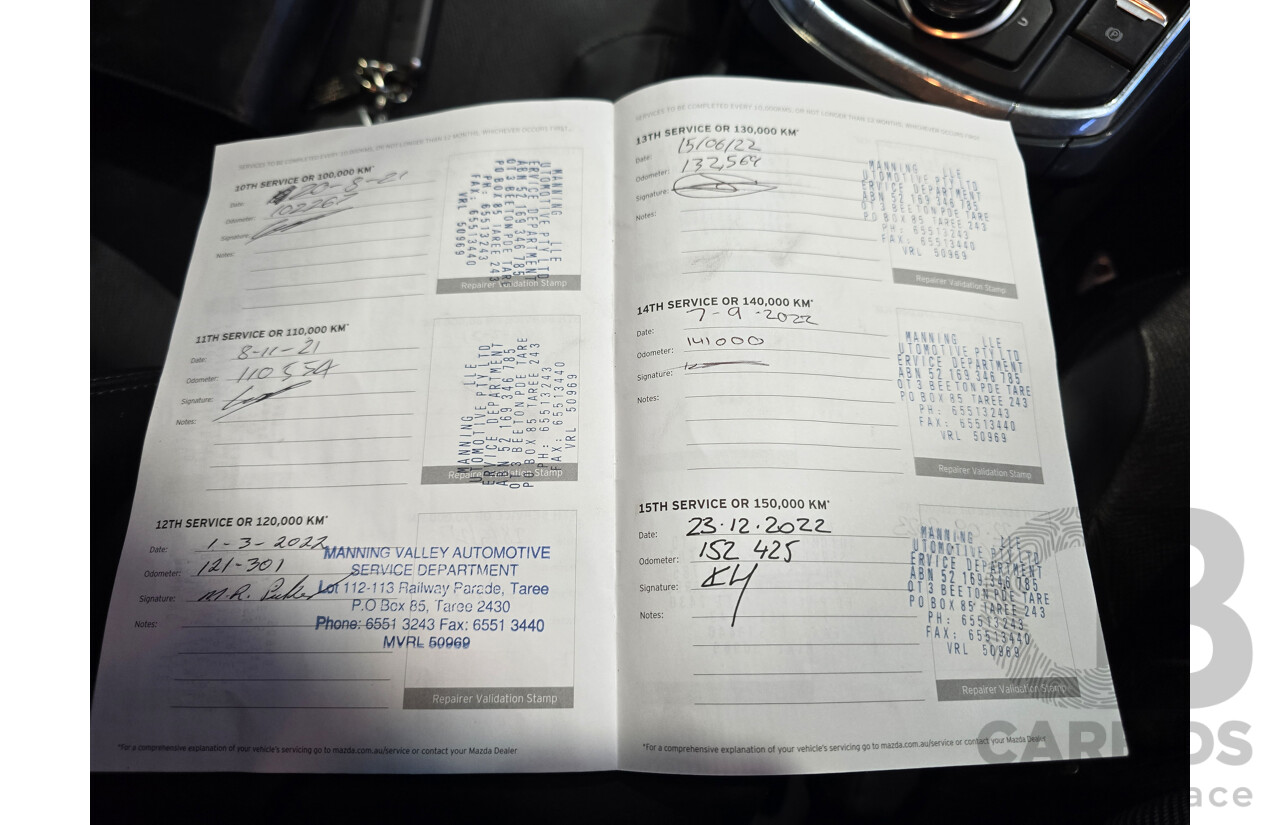 SERVICES TO BE COMPLETED EVERY 10,000KMS, OR NOT LONGER THAN 12 MONTHS, WHICHEVER OCCURS FIRST...
10TH SERVICE OR 100,000 KM*
Date: 20-8-21
Odometer: 102267
Signature:
Notes:
MANNING LLE
UTOMOTIVE PTY LTD
ERVICE DEPARTMENT
ABN 52 169 346 785
OT 3 BEETON PDE TARE
PO BOX 85 TAREE 243
PH: 65513243
FAX: 65513440
VRL 50969
Repairer Validation Stamp
11TH SERVICE OR 110,000 KM*
Date: 8-11-21
Odometer:
Signature:
Notes:
MANNING LLE
UTOMOTIVE PTY LTD
ERVICE DEPARTMENT
ABN 52 169 346 785
OT 3 BEETON PDE TARE
PO BOX 85 TAREE 243
PH: 65513243
FAX: 65513440
VRL 50969
Repairer Validation Stamp
12TH SERVICE OR 120,000 KM*
Date: 1-3-2022
Odometer: 121-301
Signature: M.R.
Notes:
MANNING VALLEY AUTOMOTIVE
SERVICE DEPARTMENT
Lot 112-113 Railway Parade, Taree
P.O Box 85, Taree 2430
Phone: 6551 3243 Fax: 6551 3440
MVRL 50969
Repairer Validation Stamp
*For a comprehensive explanation of your vehicle's servicing go to mazda.com.au/service or contact your Mazda Dealer
SERVICES TO BE COMPLETED EVERY 10,000KMS, OR NOT LONGER THAN 12 MONTHS, WHICHEVER OCCURS FIRST
13TH SERVICE OR 130,000 KM*
Date: 15/06/22
Odometer: 132,564
Signature:
Notes:
MANNING LLE
UTOMOTIVE PTY LTD
ERVICE DEPARTMENT
ABN 52 169 346 785
OT 3 BEETON PDE TARE
PO BOX 85 TAREE 243
PH: 65513243
FAX: 65513440
VRL 50969
Repairer Validation Stamp
14TH SERVICE OR 140,000 KM*
Date: 7-9-2022
Odometer: 141000
Signature:
Notes:
MANNING LLE
UTOMOTIVE PTY LTD
ERVICE DEPARTMENT
ABN 52 169 346 785
OT 3 BEETON PDE TARE
PO BOX 85 TAREE 243
PH: 65513243
FAX: 65513440
VRL 50969
Repairer Validation Stamp
15TH SERVICE OR 150,000 KM*
Date: 23.12.2022
Odometer: 152 425
Signature: KH
Notes:
MANNING LLE
UTOMOTIVE PTY LTD
ERVICE DEPARTMENT
ABN 52 169 346 785
OT 3 BEETON PDE TARE
PO BOX 85 TAREE 243
PH: 65513243
FAX: 65513440
VRL 50969
Repairer Validation Stamp
*For a comprehensive explanation of your vehicle's servicing go to mazda.com.au/service or contact your Mazda Dealer
P